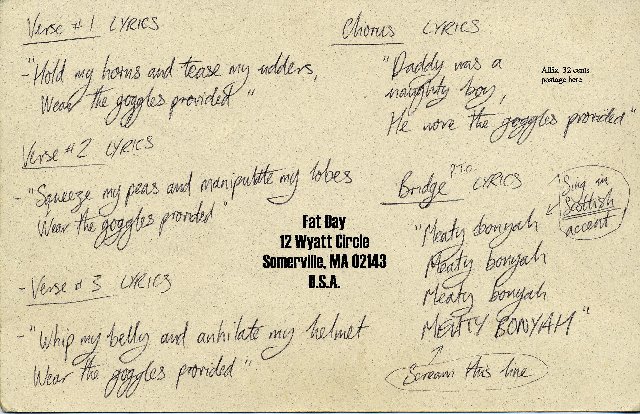 Verse #1 LYRICS
- "Hold my horns and tease my udders,
Wear the goggles provided"
Verse #2 LYRICS
- "Squeeze my peas and manipulate my lobes
Wear the goggles provided"
- Verse #3 LYRICS
- "Whip my belly and anhilate my helmet
Wear the goggles provided"
Chorus LYRICS
"Daddy was a
naughty boy,
He wore the goggles provided"
Affix 32 cents
postage here
Bridge PTO LYRICS
Sing in
Scottish
accent
"Meaty bonyah
Meaty bonyah
Meaty bonyah
MEATY BONYAH"
Scream this line
Fat Day
12 Wyatt Circle
Somerville, MA 02143
U.S.A.